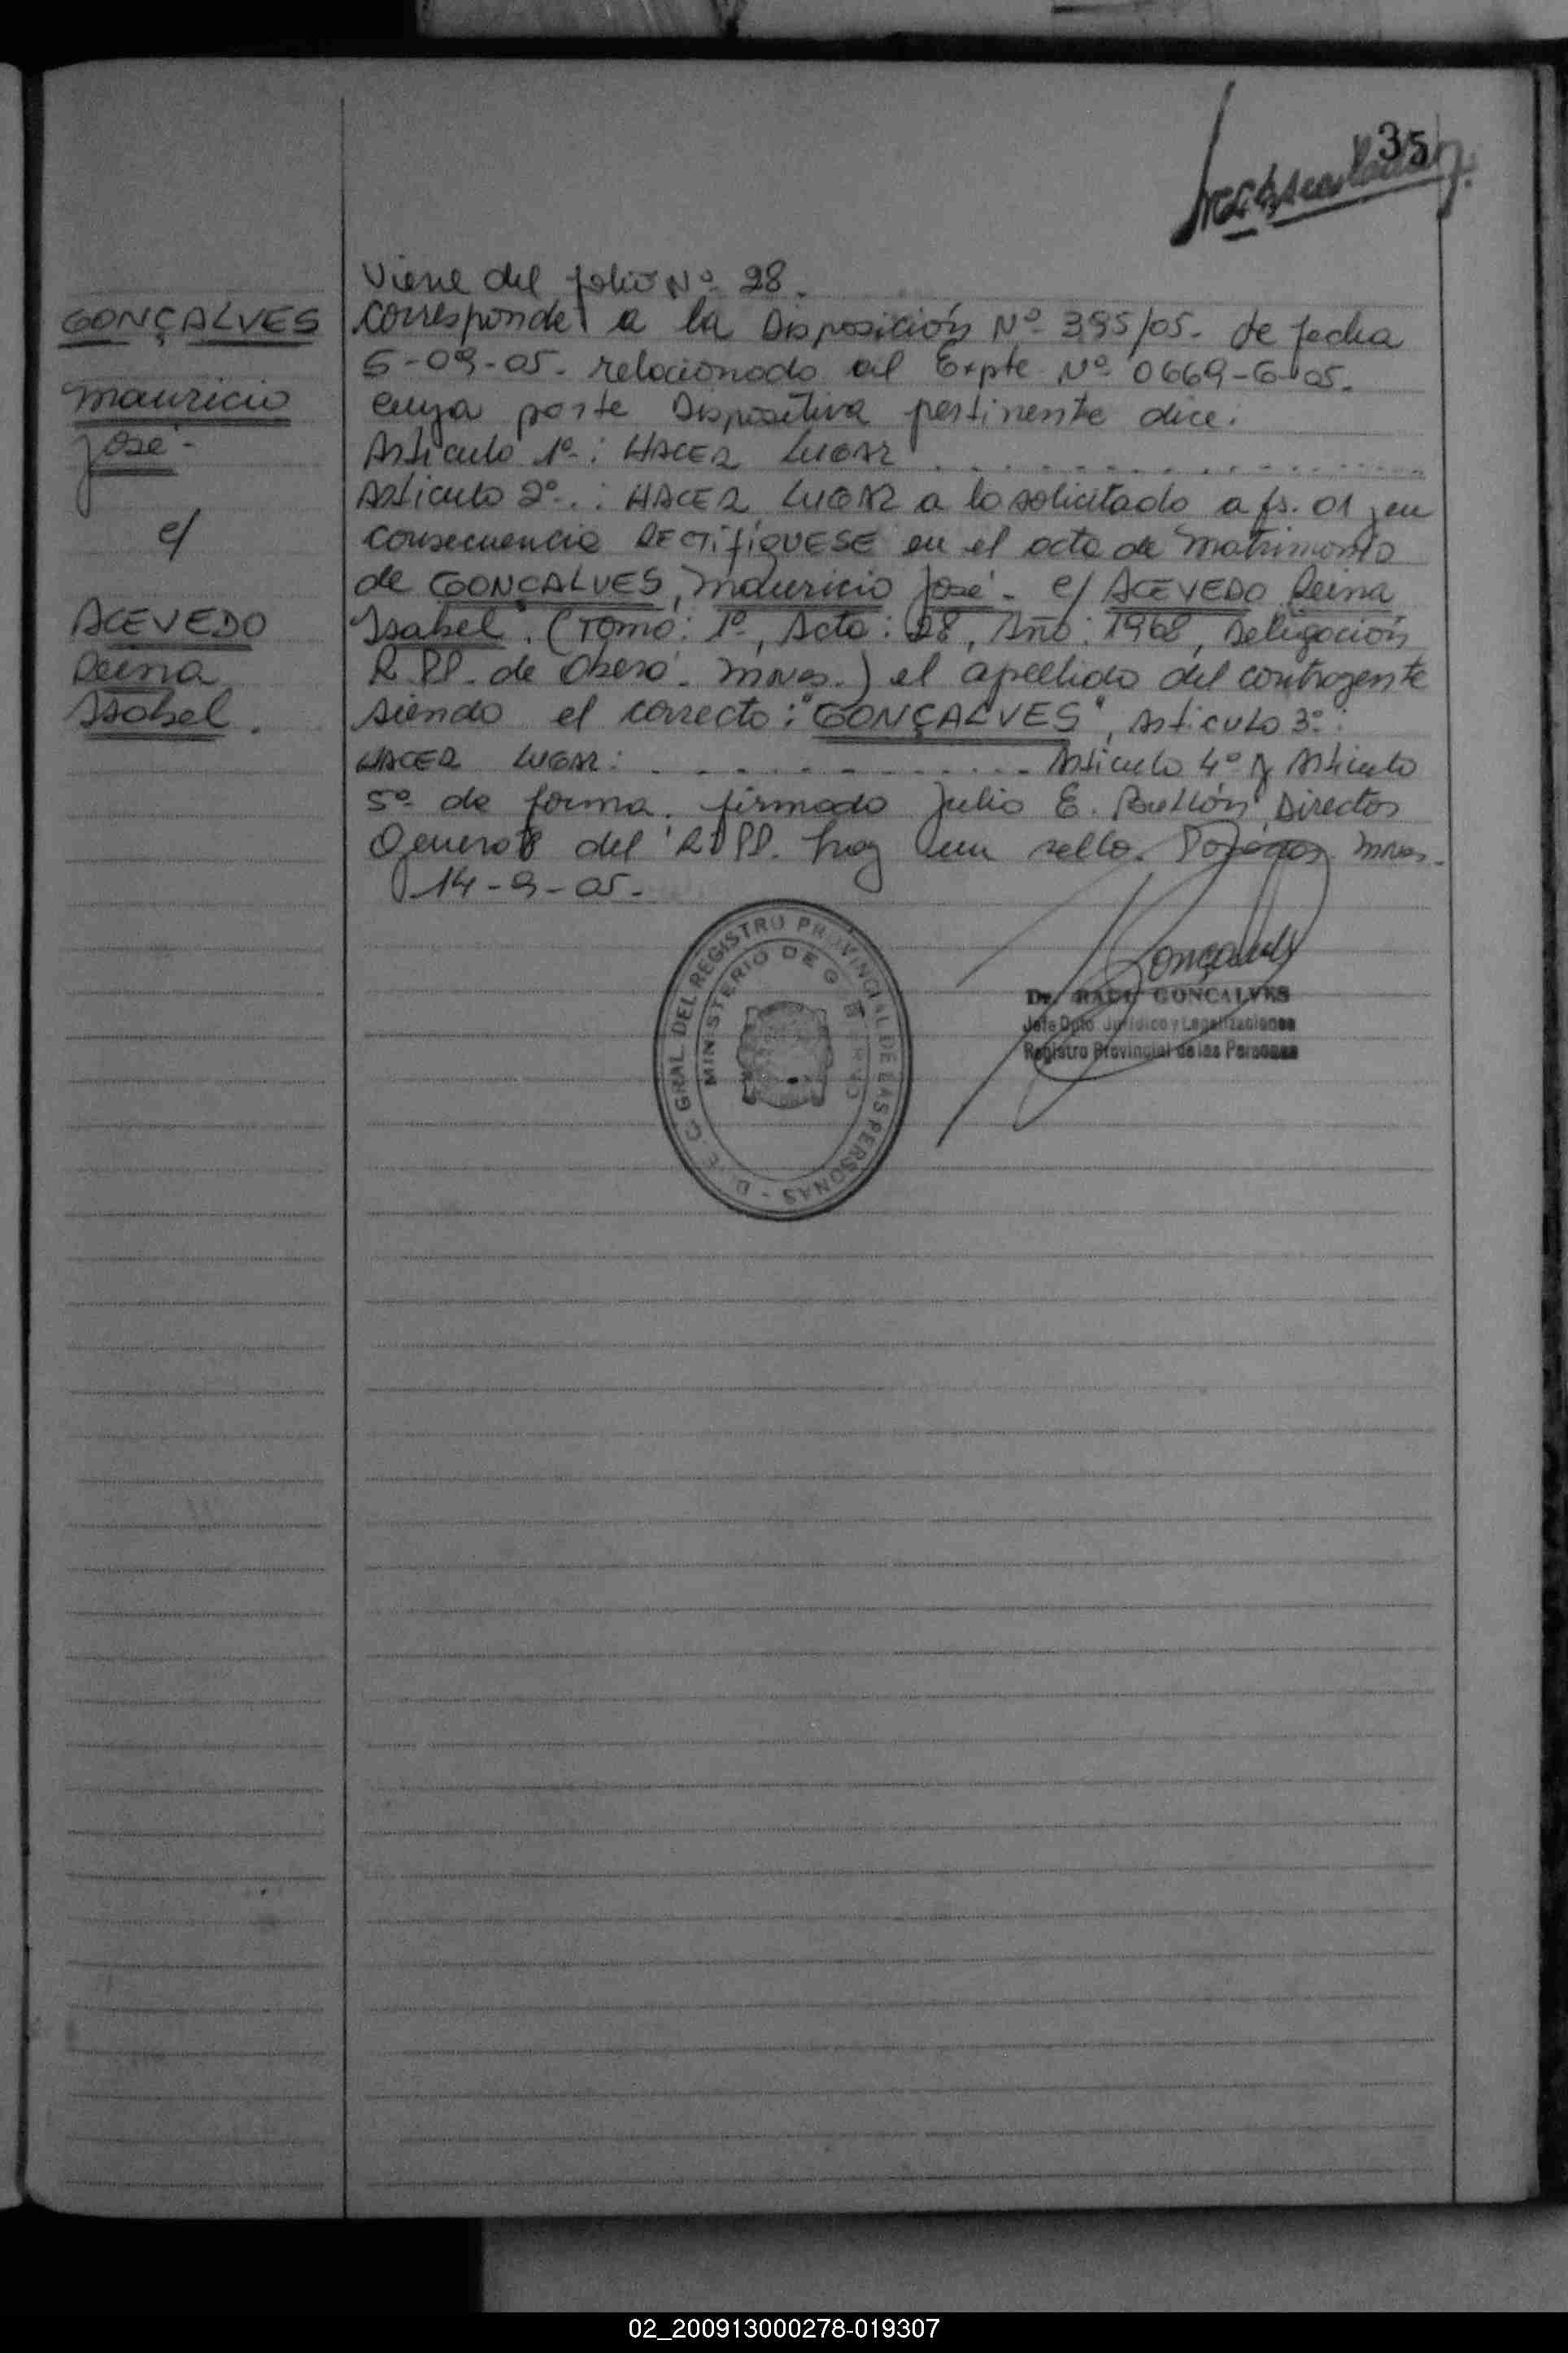 35
GONÇALVES
mauricio
José -
c/
ACEVEDO
Reina
Isabel.
Viene del folio Nº 28.
Corresponde a la Disposición Nº 395/05. de fecha
6-09-05. relacionado al Expte Nº 0669-G-05.
cuya parte Dispositiva pertinente dice:
Artículo 1º: HACER LUGAR . . . . . . . . . . . . . . .
Artículo 2º.: HACER LUGAR a lo solicitado a fs. 01 y en
consecuencia RECTIFÍQUESE en el acta de matrimonio
de GONÇALVES, mauricio José - c/ ACEVEDO Reina
Isabel. (Tomo: 1º, Acta: 28, Año: 1968, Delegación
R.PP. de Oberá. mnes.) el apellido del contrayente
siendo el correcto: "GONÇALVES", Artículo 3º:
HACER LUGAR: . . . . . . . . . . . Artículo 4º y Artículo
5º de forma. firmado Julio E. Directos
General del RPPP. hay un sello. Posadas mnes.
14-9-05.
D. E. C. GRAL. DEL REGISTRO PROVINCIAL DE LAS PERSONAS
MINISTERIO DE GOBIERNO
Gonçalves
Dr. RAUL GONCALVES
Jefe Dpto. Jurídico y Legalizaciones
Registro Provincial de las Personas
02_200913000278-019307